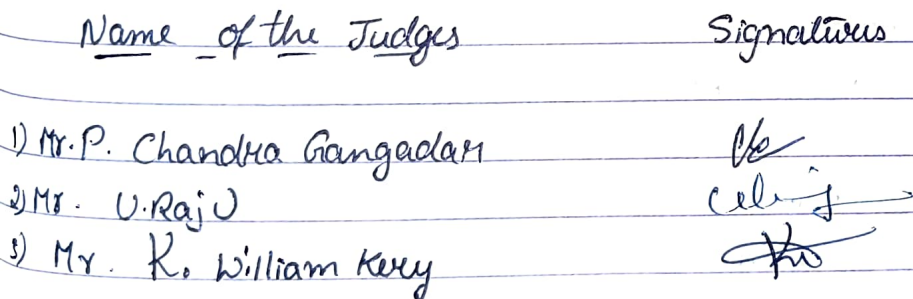 Name of the Judges Signatures
1) Mr. P. Chandra Gangadar
2) Mr. U. Raju
3) Mr. K. William Kery